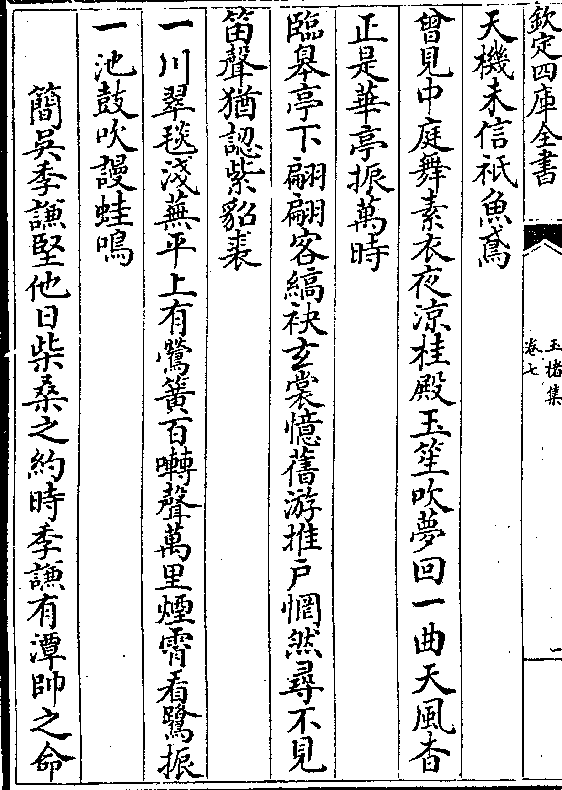 欽定四庫全書
玉楮集
卷七
天機未信祇魚鳶
曾見中庭舞素衣夜涼桂殿玉笙吹夢回一曲天風杳
正是華亭振萬時
臨臯亭下翩翩客縞袂玄裳憶舊游推戶惘然尋不見
笛聲猶認紫貂裘
一川翠毯淺蕪平上有鶯簧百囀聲萬里煙霄看鷺振
一池鼓吹謾蛙鳴
簡吳季謙堅他日柴桑之約時季謙有潭帥之命